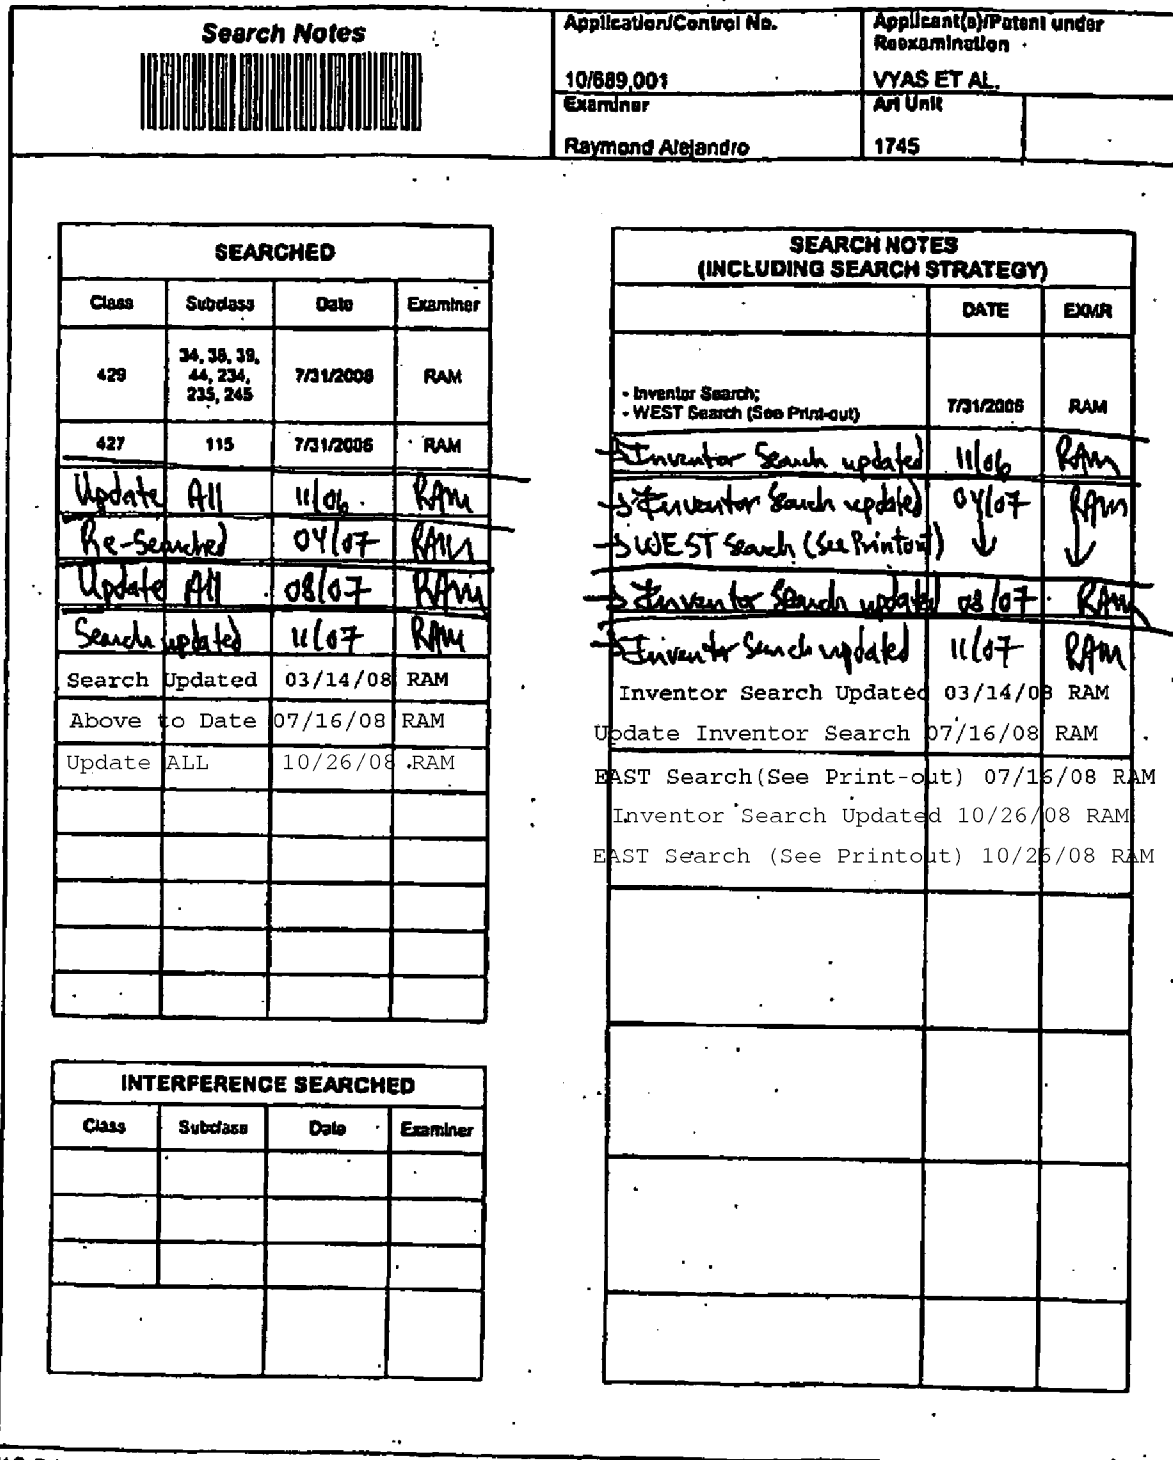 Search Notes
Application/Control No.
10/689,001
Applicant(s)/Patent under
Reexamination
VYAS ET AL.
Examiner
Raymond Alejandro
Art Unit
1745
SEARCHED
Class Subclass Date Examiner
34, 38, 39,
429 44, 234, 7/31/2006 RAM
235, 245
427 115 7/31/2006 RAM
Update All 11/06 RAM
Re-Searched 04/07 RAM
Update All 08/07 RAM
Search updated 11/07 RAM
Search Updated 03/14/08 RAM
Above to Date 07/16/08 RAM
Update ALL 10/26/08 RAM
INTERFERENCE SEARCHED
Class Subclass Date Examiner
SEARCH NOTES
(INCLUDING SEARCH STRATEGY)
DATE EXMR
- Inventor Search;
- WEST Search (See Print-out) 7/31/2006 RAM
→ Inventor Search updated 11/06 RAM
→ Inventor Search updated 04/07 RAM
→ WEST Search (See Printout) ↓ ↓
→ Inventor Search updated 08/07 RAM
→ Inventor Search updated 11/07 RAM
Inventor Search Updated 03/14/08 RAM
Update Inventor Search 07/16/08 RAM
EAST Search(See Print-out) 07/16/08 RAM
Inventor Search Updated 10/26/08 RAM
EAST Search (See Printout) 10/26/08 RAM